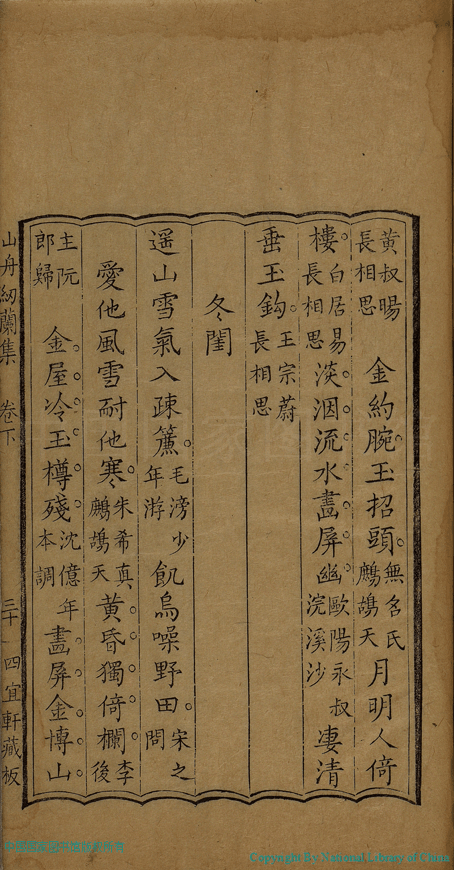 黃叔暘長相思　金約腕。玉招頭。無名氏鷓鴣天　月明人倚
樓。白居易長相思　淡洇流水畫屏幽。歐陽永叔浣溪沙　淒清
垂玉鈎。王宗蔚長相思
冬閨
遥山雪氣入疎簾。毛滂少年游　飢烏噪野田。宋之問
愛他風雪耐他寒。朱希真鷓鴣天　黃昏獨倚欄。李後
主阮郎歸　金屋冷。玉樽殘。沈億年本調　畫屏金博山。
山舟紉蘭集　卷下　三十　四宜軒藏板
Copyright By National Library of China